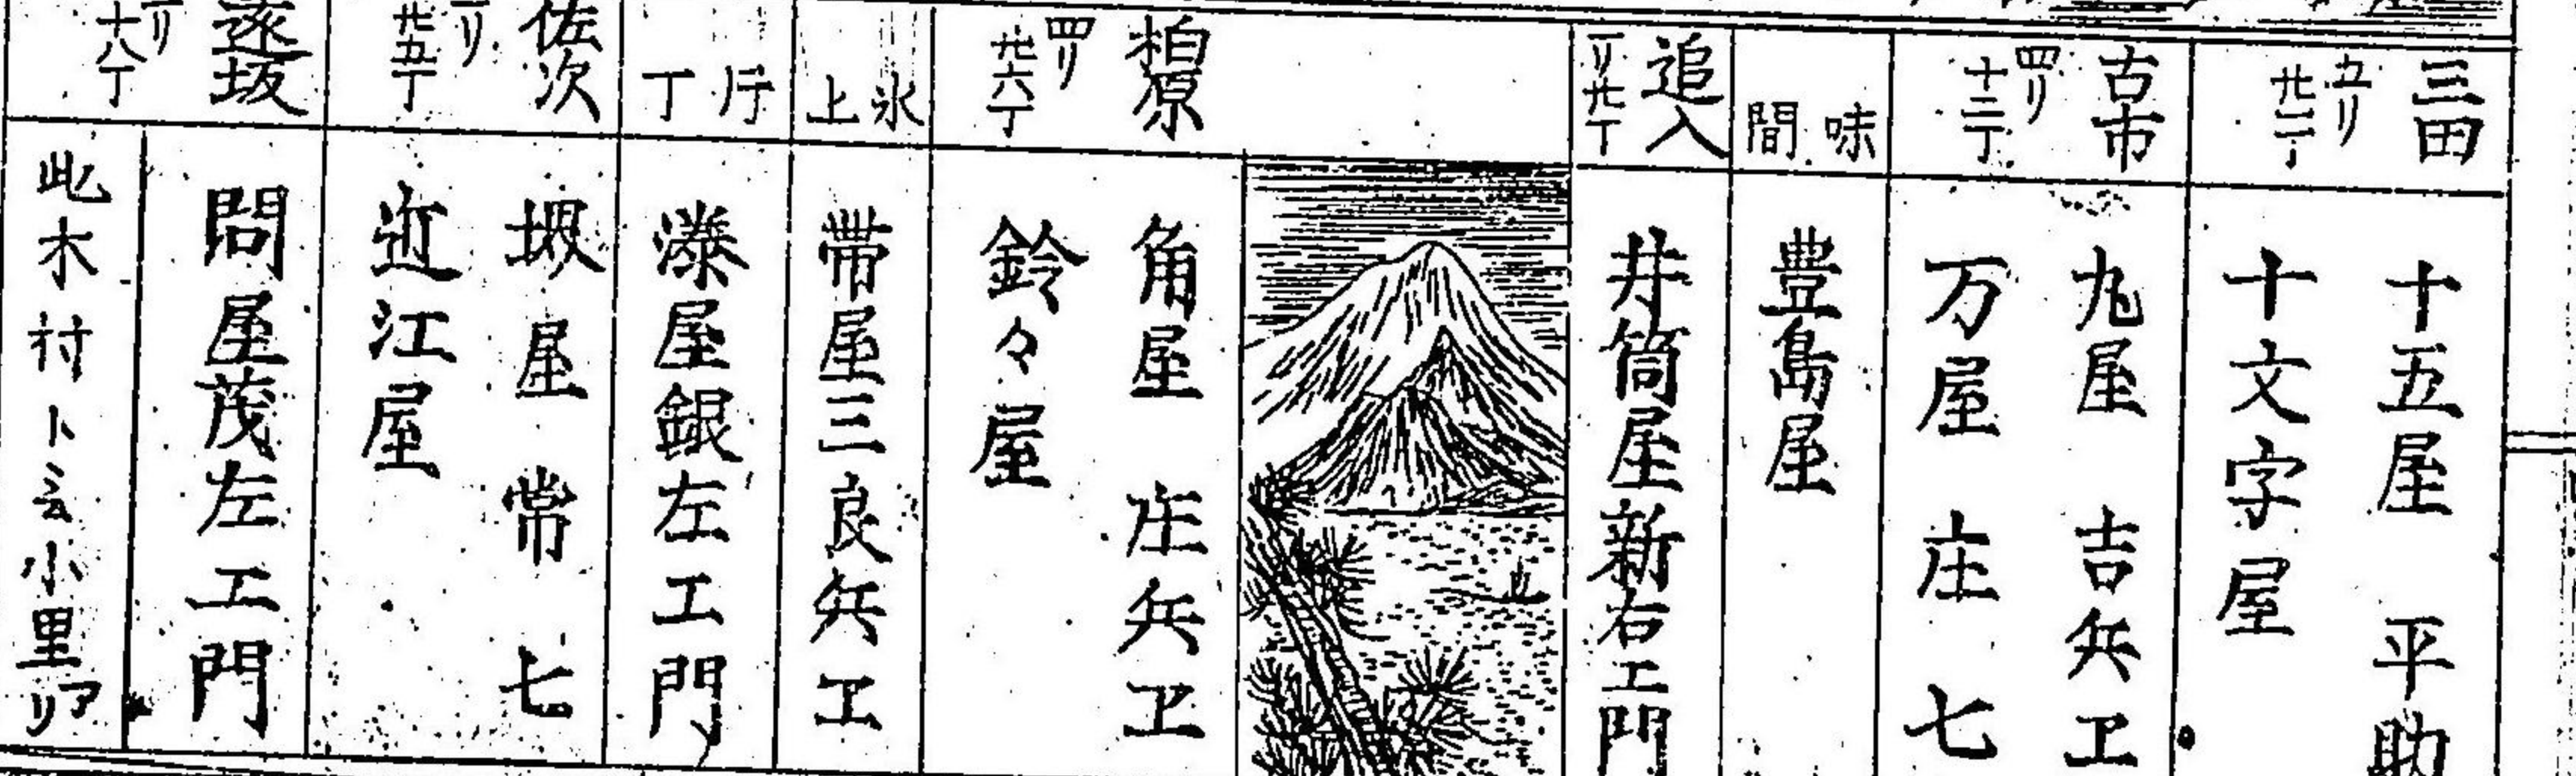 三田
五リ
廿一丁
十五屋 平助
十文字屋
古市
四リ
十二丁
丸屋 吉兵ヱ
万屋 庄七
味間
豊島屋
追入
一リ
廿丁
井筒屋新右エ門
柏原
四リ
廿六丁
角屋 庄兵ヱ
鈴々屋
氷上
帯屋三良兵ヱ
丁
湊屋銀左エ門
佐次
一リ
廿五丁
堺屋常七
近江屋
遠坂
一リ
十八丁
問屋茂左エ門
此木村ト云小里アリ